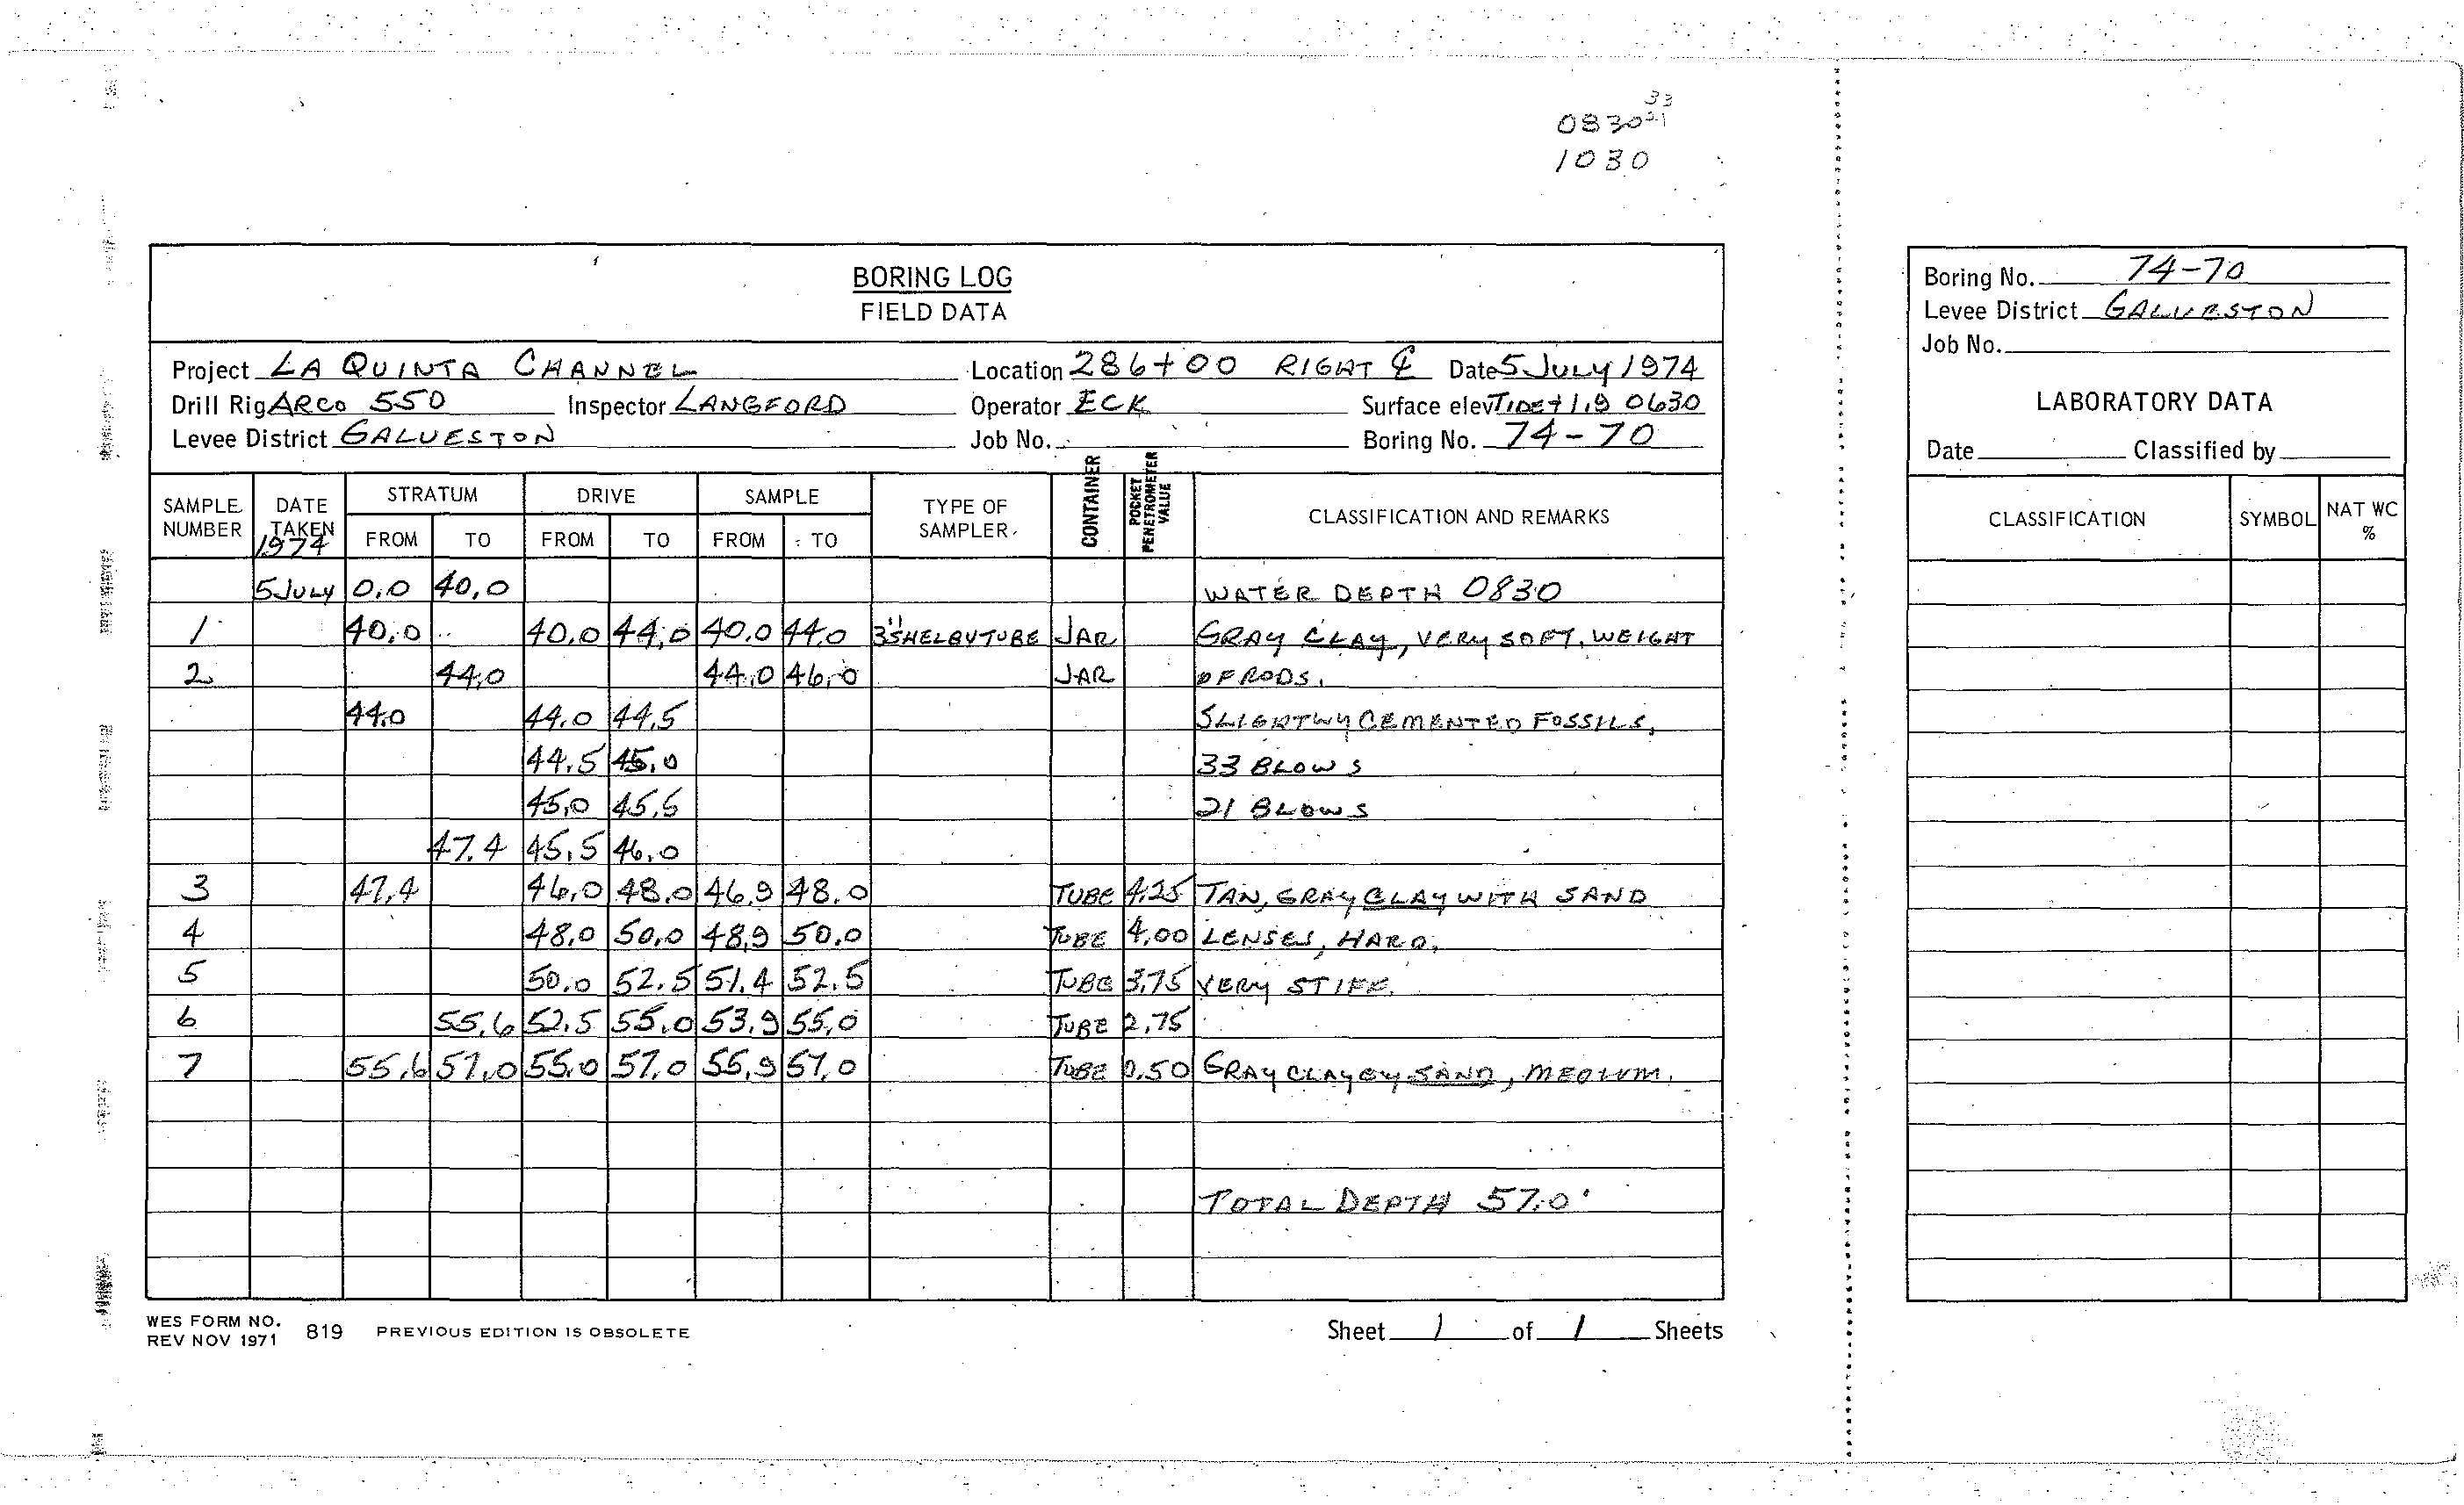 33
0830 21
1030
BORING LOG
FIELD DATA
Project LA QUINTA CHANNEL Location 286+00 RIGHT ℄ Date 5 JULY 1974
Drill Rig ARCO 550 Inspector LANGFORD Operator ECK Surface elev TIDE +1.9 0630
Levee District GALVESTON Job No. Boring No. 74-70
SAMPLE NUMBER DATE TAKEN 1974 STRATUM FROM TO DRIVE FROM TO SAMPLE FROM TO TYPE OF SAMPLER CONTAINER POCKET PENETROMETER VALUE CLASSIFICATION AND REMARKS
5 JULY 0.0 40.0 WATER DEPTH 0830
1 40.0 40.0 44.0 40.0 44.0 3" SHELBY TUBE JAR GRAY CLAY, VERY SOFT, WEIGHT
2 44.0 44.0 46.0 JAR OF RODS.
44.0 44.0 44.5 SLIGHTLY CEMENTED FOSSILS,
44.5 45.0 33 BLOWS
45.0 45.5 21 BLOWS
47.4 45.5 46.0
3 47.4 46.0 48.0 46.9 48.0 TUBE 4.25 TAN, GRAY CLAY WITH SAND
4 48.0 50.0 48.9 50.0 TUBE 4.00 LENSES, HARD,
5 50.0 52.5 51.4 52.5 TUBE 3.75 VERY STIFF.
6 55.6 52.5 55.0 53.9 55.0 TUBE 2.75
7 55.6 57.0 55.0 57.0 55.9 57.0 TUBE 0.50 GRAY CLAYEY SAND, MEDIUM.
TOTAL DEPTH 57.0'
WES FORM NO. 819 PREVIOUS EDITION IS OBSOLETE
REV NOV 1971
Sheet 1 of 1 Sheets
Boring No. 74-70
Levee District GALVESTON
Job No.
LABORATORY DATA
Date Classified by
CLASSIFICATION SYMBOL NAT WC %